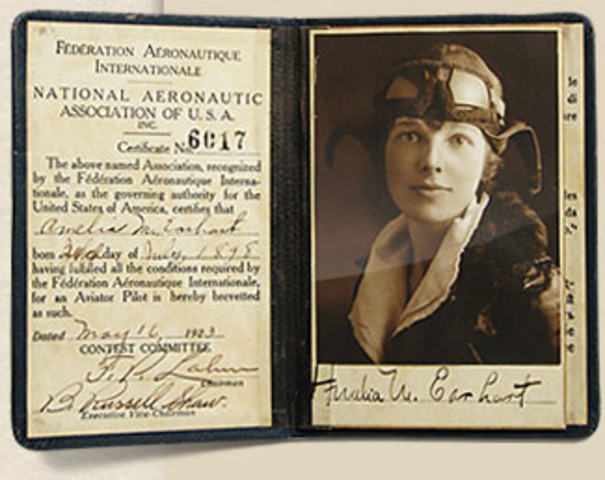 FÉDÉRATION AÉRONAUTIQUE
INTERNATIONALE
NATIONAL AERONAUTIC
ASSOCIATION OF U. S. A.
INC.
Certificate No. 6017
The above named Association, recognized
by the Fédération Aéronautique Interna-
tionale, as the governing authority for the
United States of America, certifies that
Amelia M. Earhart
born 24th day of July, 1898
having fulfilled all the conditions required by
the Fédération Aéronautique Internationale,
for an Aviator Pilot is hereby brevetted
as such.
Dated May 16, 1923
CONTEST COMMITTEE
F. P. Lahm
Chairman
B. Russell Shaw.
Executive Vice-Chairman
Amelia M. Earhart
le
di
re
les
da